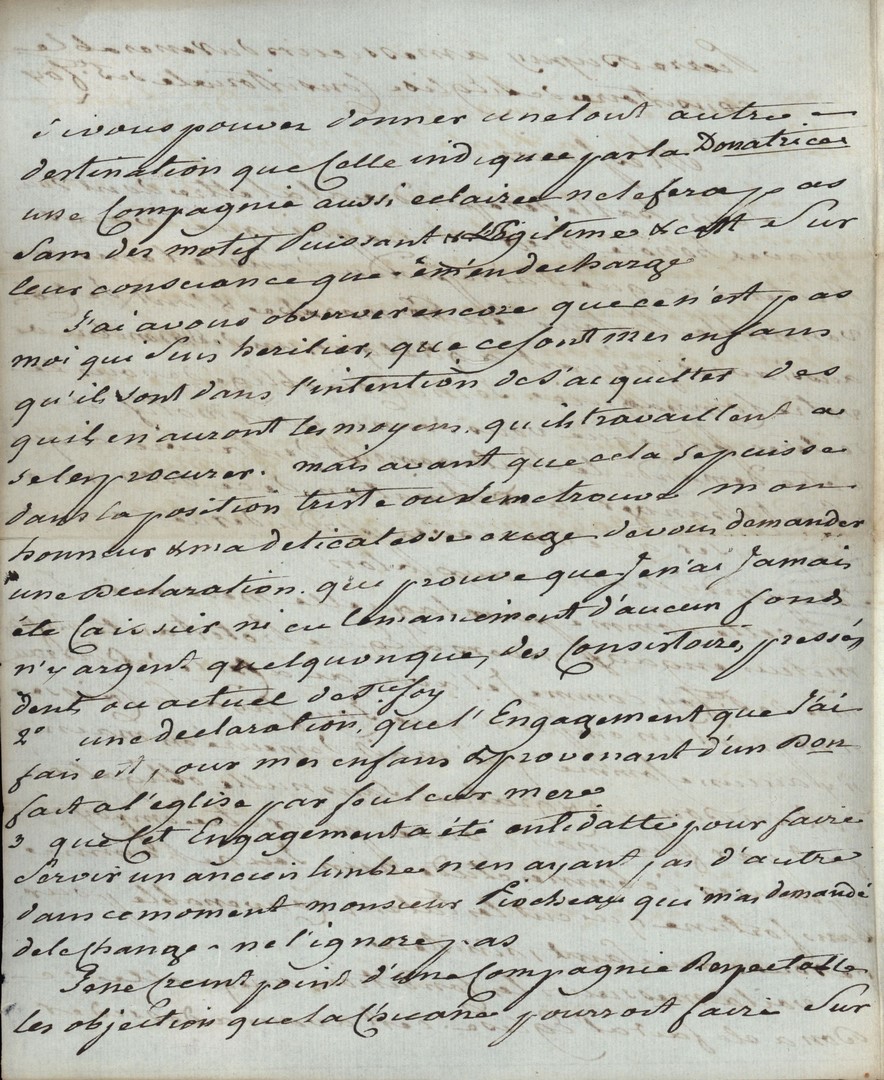 si vous pouvez donner une tout autre
destination que Celle indiquée par la Donatrice
une Compagnie aussi eclairée ne le fera pas
sans des motif Puissant & Légitime & cest sur
leur consciance que j'em'en decharge
J'ai a vous observer encore que ce n'est pas
moi qui suis heritier, que ce sont mes enfans
qu'ils sont dans l'intention de s'acquitter des
quils en auront les moyens. qu'ils travaillent a
se les procurer. mais avant que cela se puisse
dans la position triste ou je me trouve mon
honneur & ma delicatesse exige de vous demander
une Declaration. qui prouve que Je n'ai Jamais
été Caissier ni eu le maniement d'aucun fond
n'y argent quelquonque, des Consistoire, pressé
dent ou actuel de Ste foy
2° une declaration, que l'Engagement que J'ai
fait est, pour mes enfans & provenant d'un Don
fait a l'eglise par feu leur mere
3 que Cet Engagement a été antidatté pour faire
Servir un ancien timbre n'en ayant pas d'autre
dans ce moment monsieur Piocheau qui m'a demandé
de le Change - ne l'ignore pas
Je ne Creint point d'une Compagnie Respectable
les objection que la Chicane pourroit faire Sur